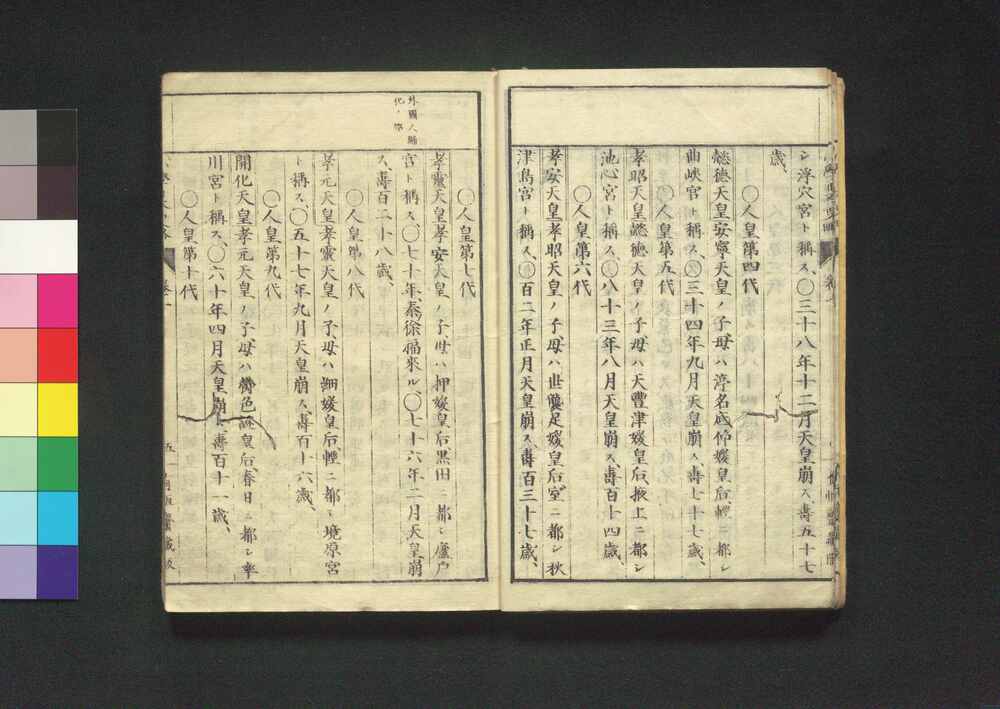 シ浮穴宮ト稱ス、〇三十八年十二月天皇崩ス壽五十七
歲、
〇人皇第四代
懿德天皇安寧天皇ノ子、母ハ渟名底仲媛皇后、輕ニ都シ
曲峽宮ト稱ス、〇三十四年九月天皇崩ス、壽七十七歲、
〇人皇第五代
孝昭天皇懿德天皇ノ子、母ハ天豐津媛皇后、掖上ニ都シ
池心宮ト稱ス、〇八十三年八月天皇崩ス、壽百十四歲、
〇人皇第六代
孝安天皇孝昭天皇ノ子、母ハ世襲足媛皇后、室ニ都シ秋
津島宮ト稱ス、〇百二年正月天皇崩ス、壽百三十七歲、
外國人歸
化ノ
〇人皇第七代
孝靈天皇孝安天皇ノ子、母ハ押媛皇后、黑田ニ都シ廬戶
宮ト稱ス、〇七十年、秦徐福來ル、〇七十六年二月天皇崩
ス、壽百二十八歲、
〇人皇第八代
孝元天皇孝靈天皇ノ子、母ハ細媛皇后、輕ニ都シ境原宮
ト稱ス、〇五十七年九月天皇崩ス、壽百十六歲、
〇人皇第九代
開化天皇孝元天皇ノ子、母ハ欝色謎皇后、春日ニ都シ率
川宮ト稱ス、〇六十年四月天皇崩ス、壽百十一歲、
〇人皇第十代
五